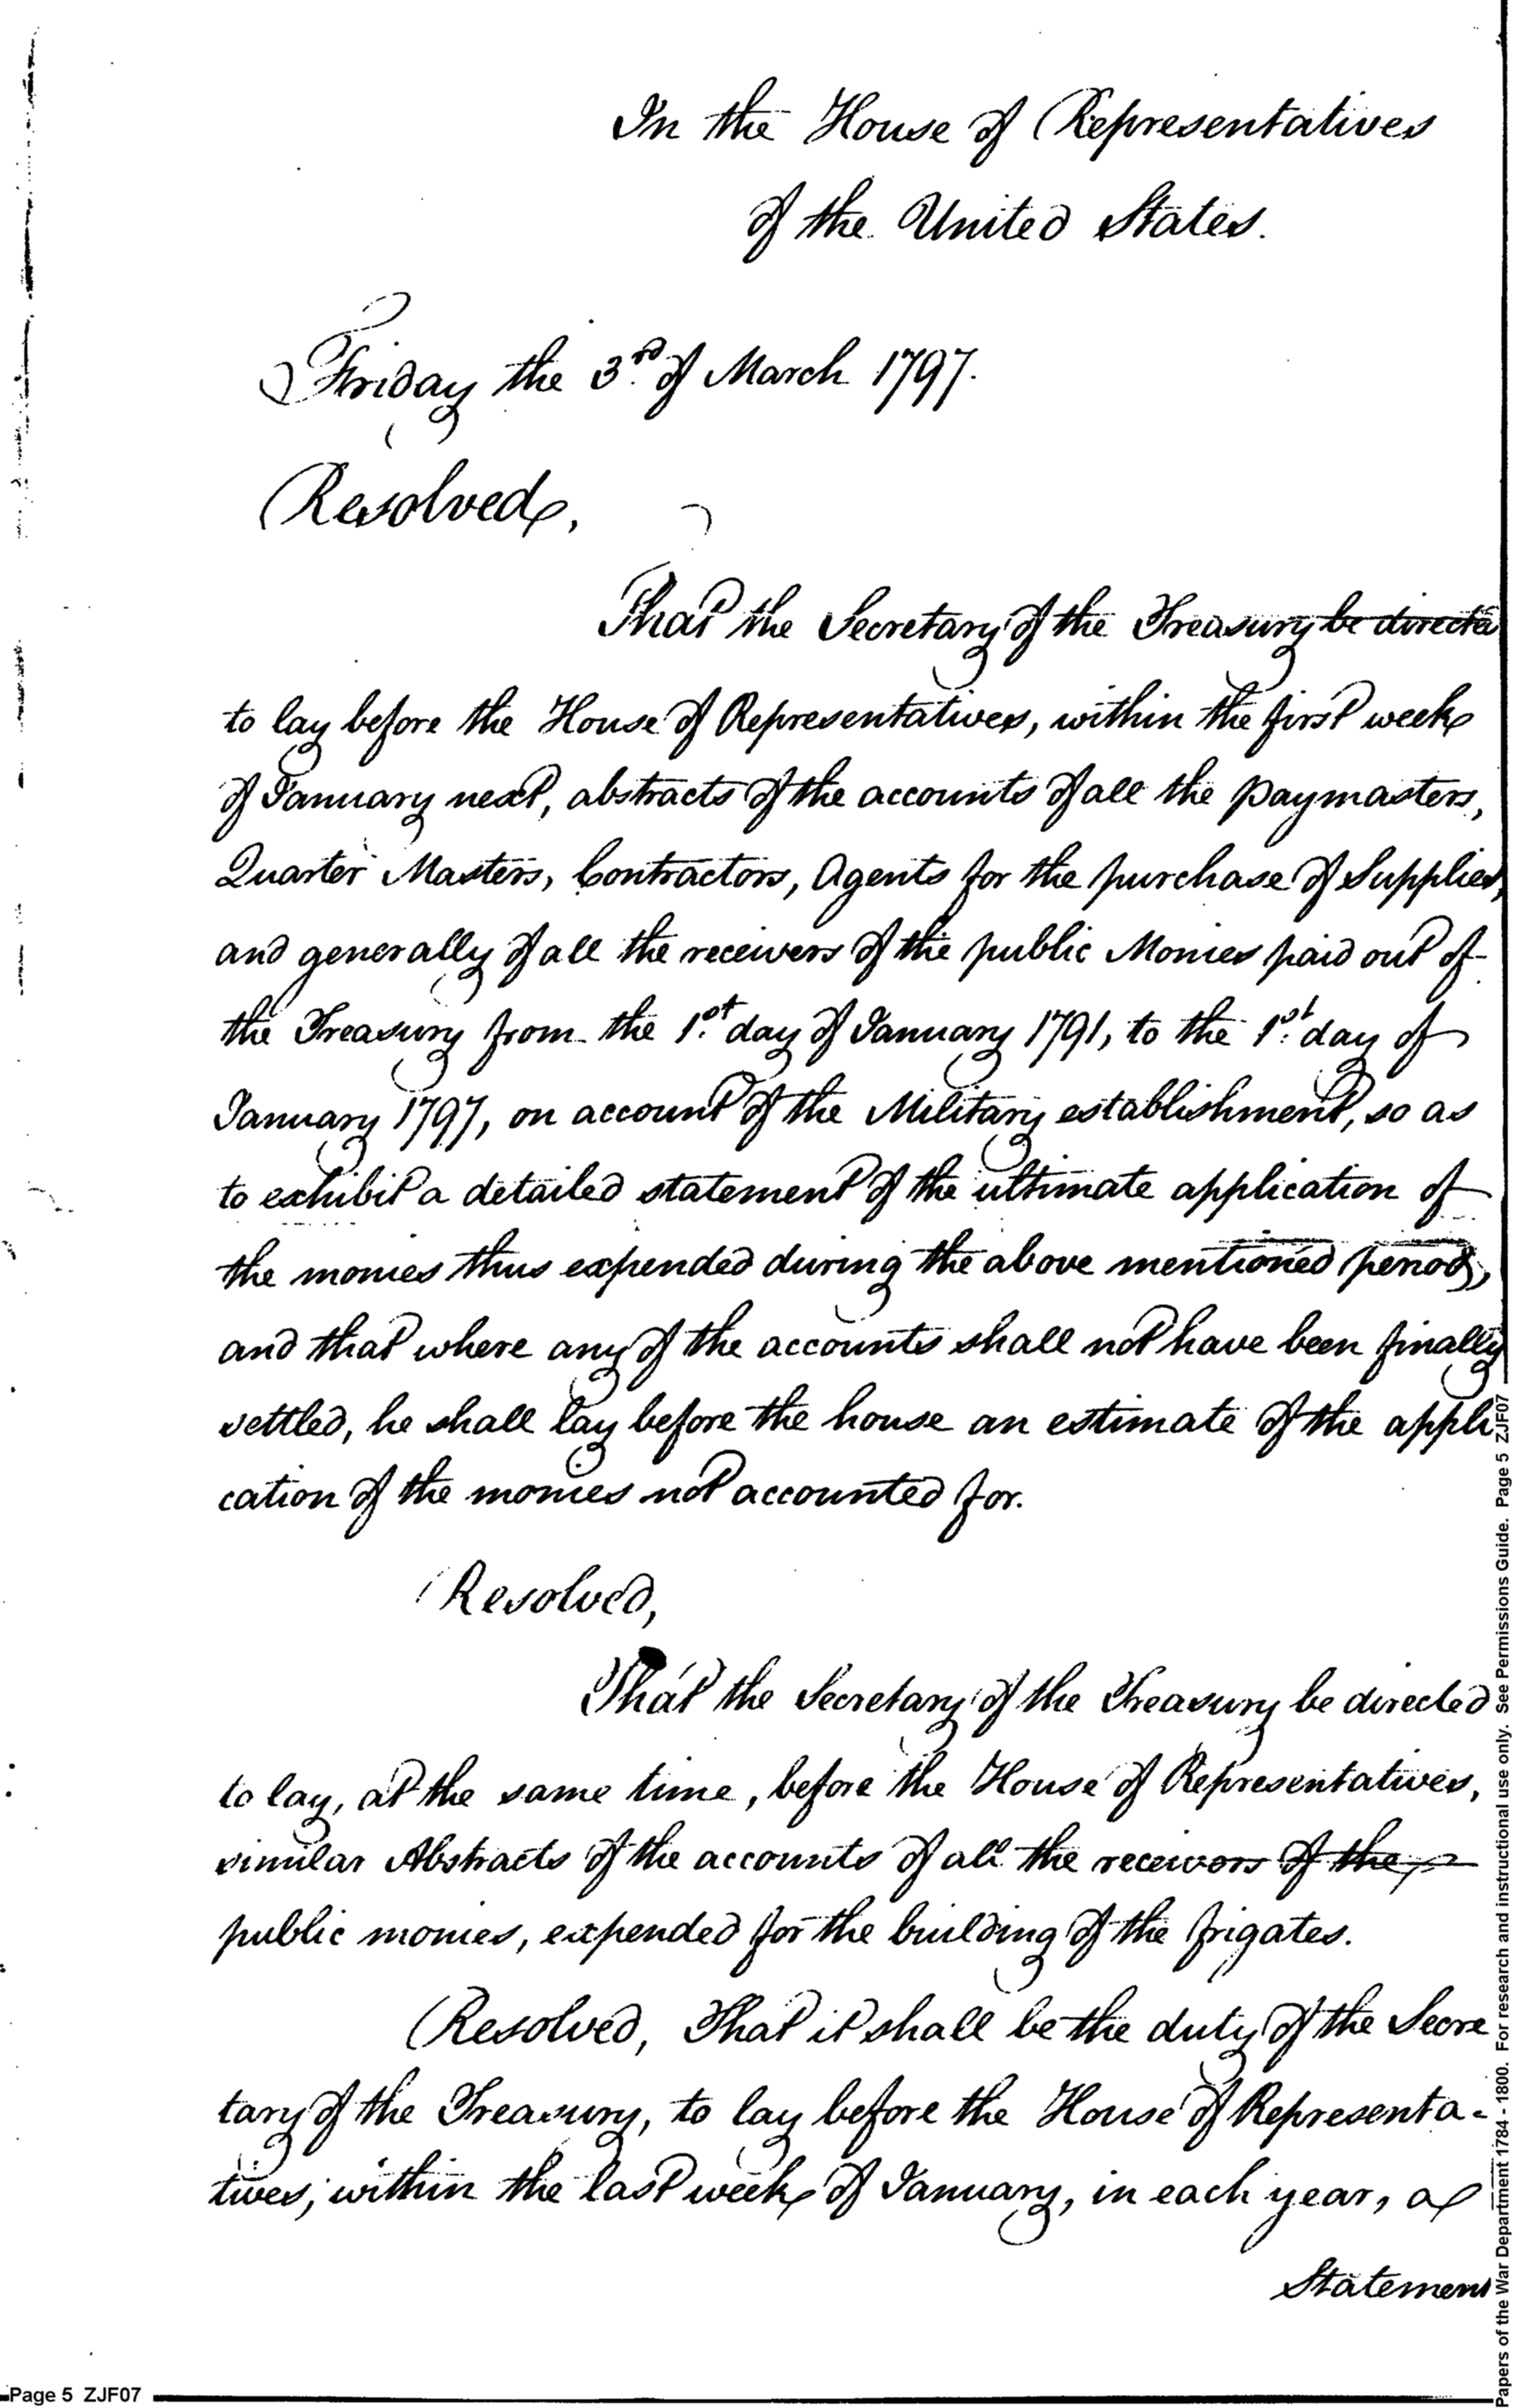 In the House of Representatives
of the United States.
Friday the 3rd. of March 1797.
Resolved,
That the Secretary of the Treasury be directed
to lay before the House of Representatives, within the first week
of January next, abstracts of the accounts of all the paymasters,
Quarter Masters, Contractors, Agents for the purchase of Supplies,
and generally of all the receivers of the public Monies paid out of
the Treasury from the 1st. day of January 1791, to the 1st. day of
January 1797, on account of the Military establishment, so as
to exhibit a detailed statement of the ultimate application of
the monies thus expended during the above mentioned period,
and that where any of the accounts shall not have been finally
settled, he shall lay before the house an estimate of the appli
cation of the monies not accounted for.
Resolved,
That the Secretary of the Treasury be directed
to lay, at the same time, before the House of Representatives,
similar Abstracts of the accounts of all the receivors of the
public monies, expended for the building of the frigates.
Resolved, That it shall be the duty of the Secre
tary of the Treasury, to lay before the House of Representa-
tives, within the last week of January, in each year, a
Statement
Page 5 ZJF07
Papers of the War Department 1784 - 1800. For research and instructional use only. See Permissions Guide. Page 5 ZJF07